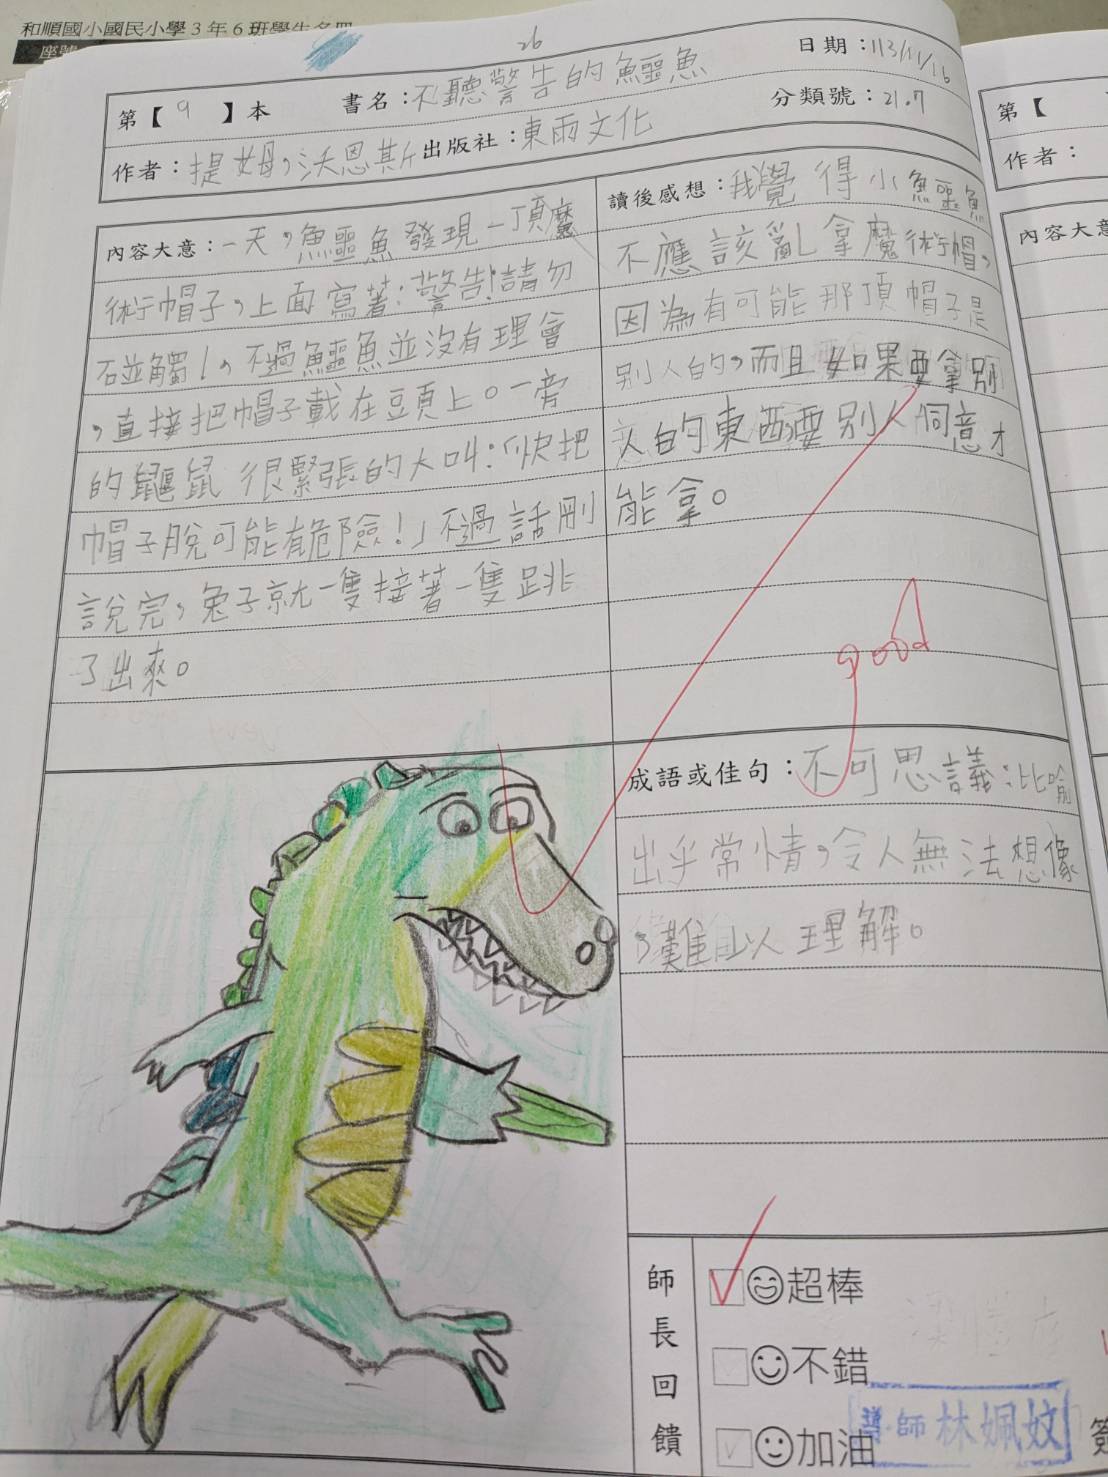 和順國小國民小學3年6班學生名冊
座號
26
第【9】本 書名：不聽警告的鱷魚 日期：113/11/16
作者：提姆，沃恩斯 出版社：東雨文化 分類號：21.7
內容大意：一天，鱷魚發現一頂魔
術帽子，上面寫著：警告！請勿
碰觸！，不過鱷魚並沒有理會
，直接把帽子載在頭上。一旁
的鼴鼠很緊張的大叫：「快把
帽子脫可能有危險！」不過話剛
說完，兔子就一隻接著一隻跳
了出來。
讀後感想：我覺得小鱷魚
不應該亂拿魔術帽，
因為有可能那頂帽子是
別人的，而且如果要拿別
人的東西要別人同意才
能拿。
good
成語或佳句：不可思議：比喻
出乎常情，令人無法想像
，難以理解。
師長回饋
超棒
不錯
加油
導師林姵妏
簽
第【
作者：
內容大意